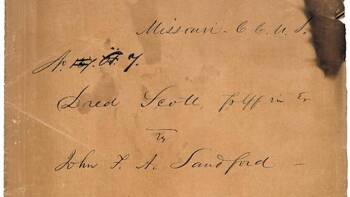 Missouri C. C. U. S.
No. 7.
Dred Scott, Plff in Er
vs
John F. A. Sandford